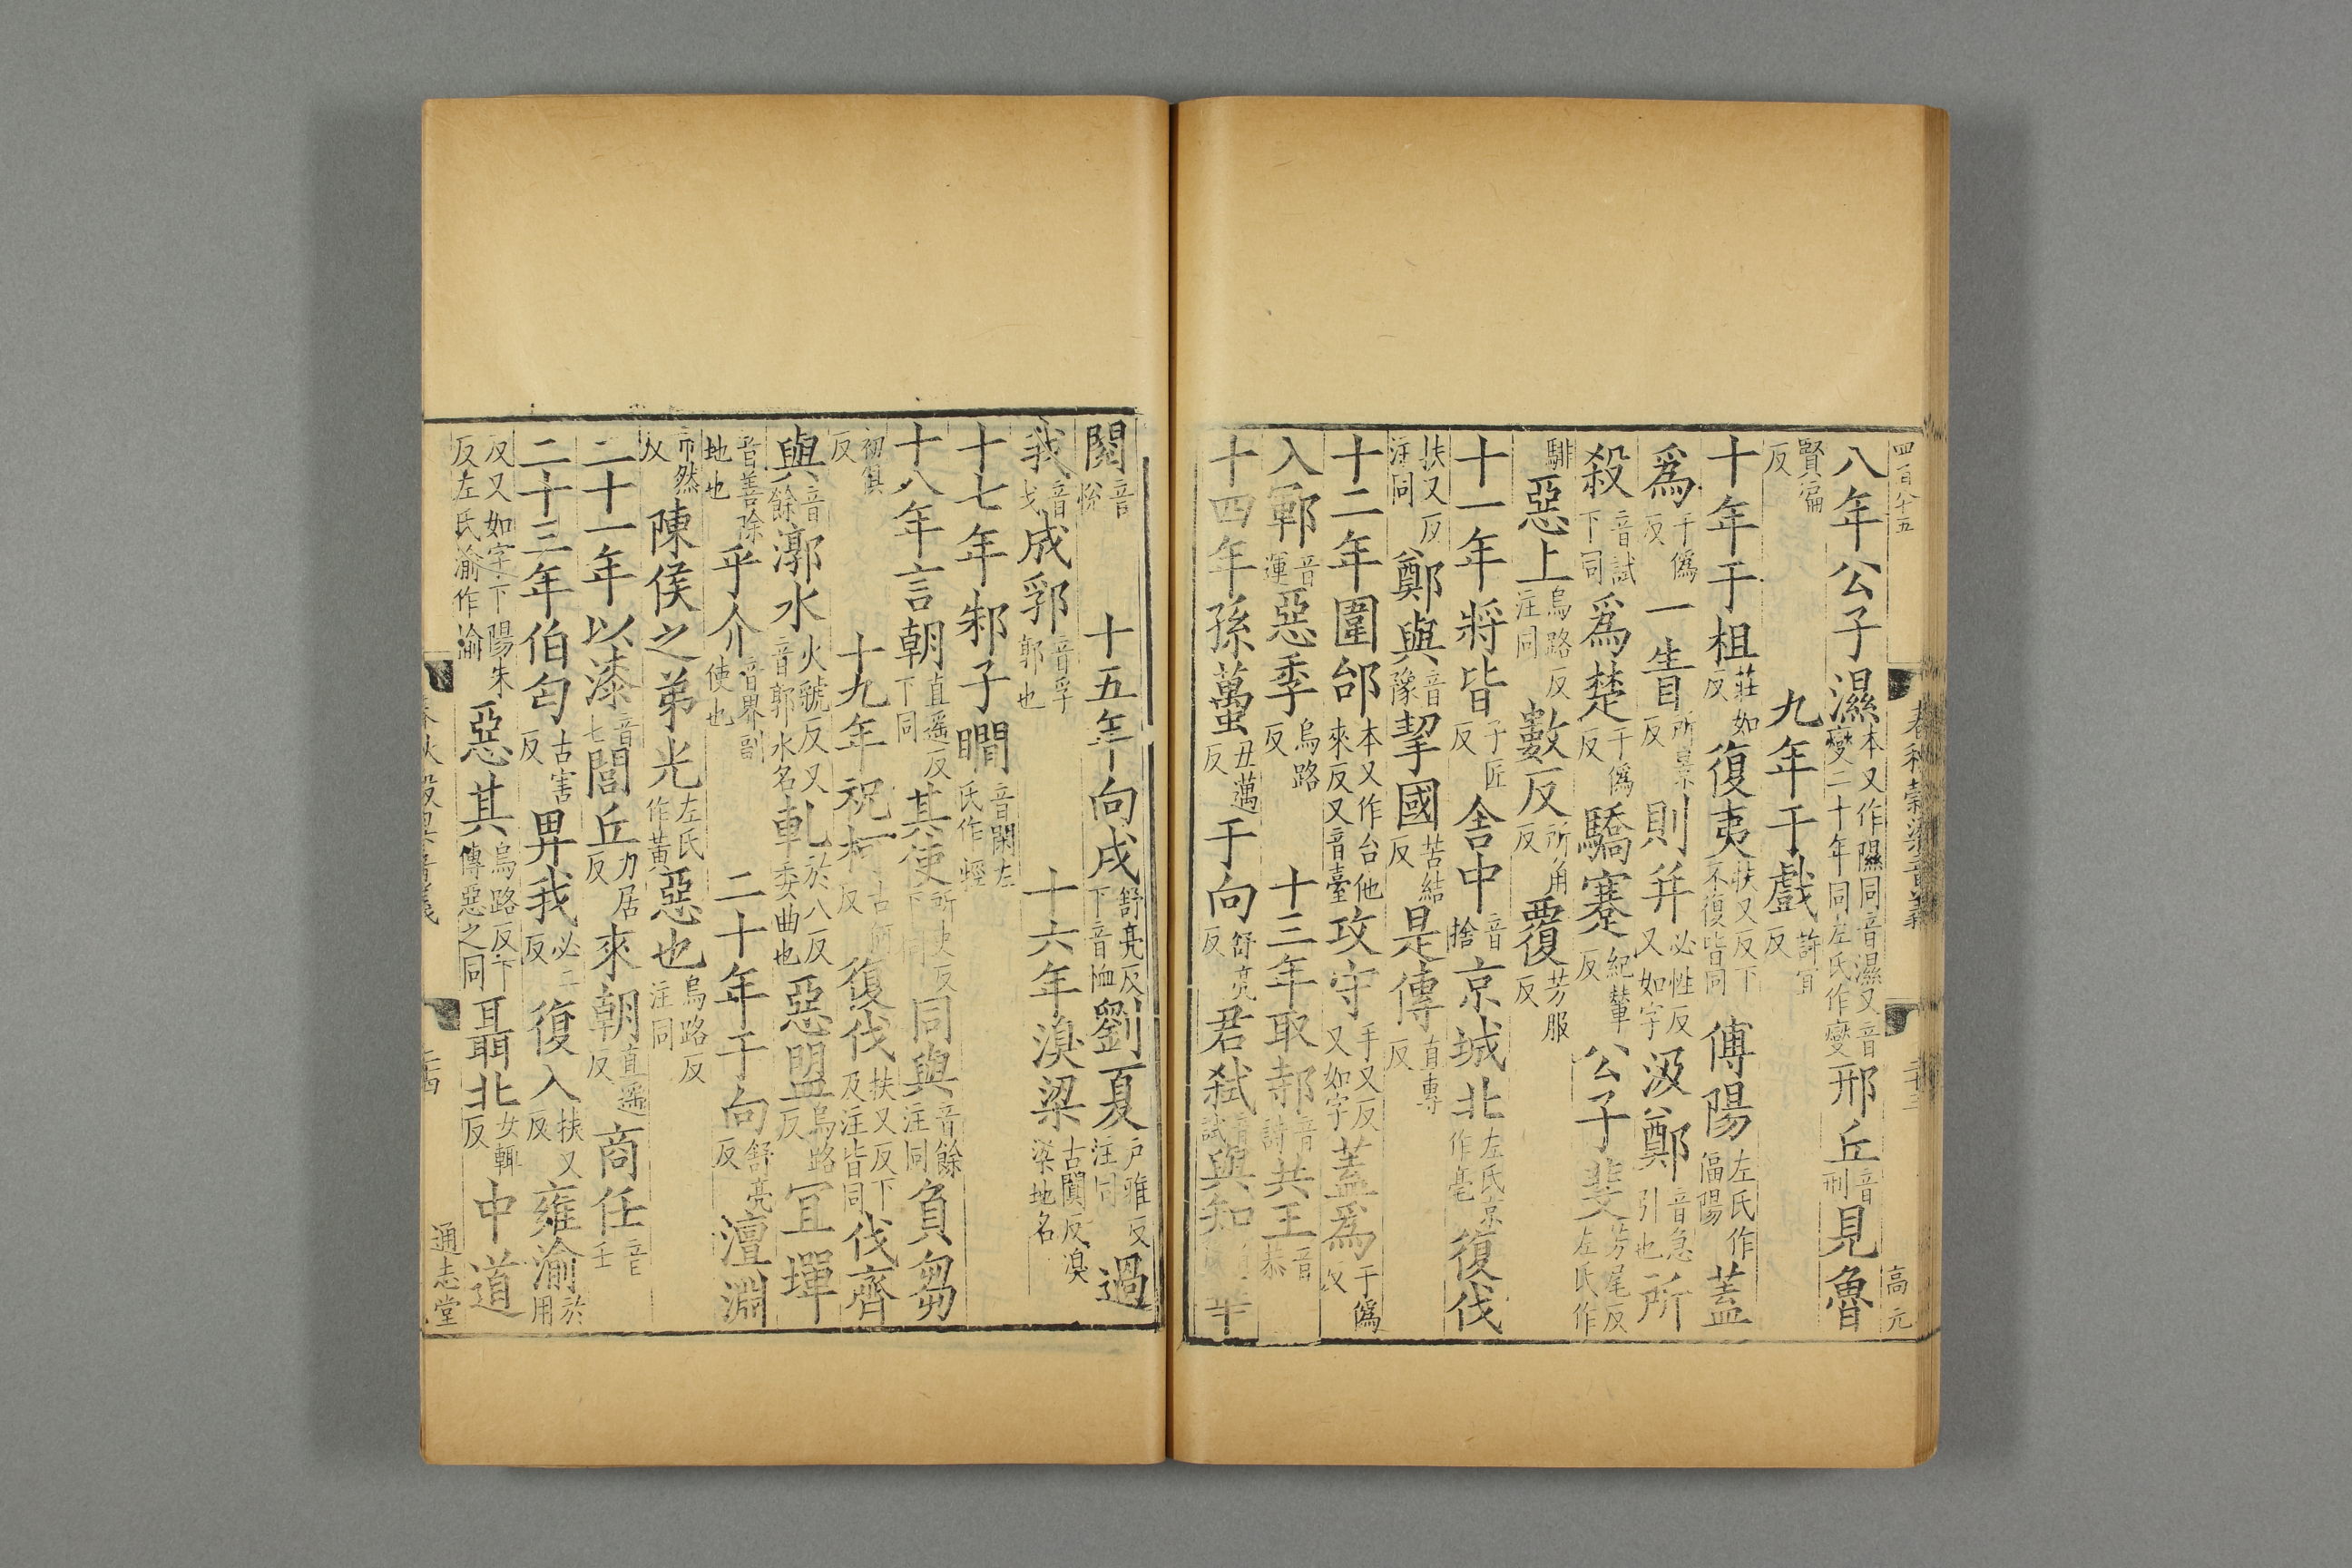 四百八十五
八年公子濕本又作隰同音濕又音燮二十年同左氏作燮邢丘音刑見魯
賢徧反九年于戲許宜反
十年于柤莊如反復夷扶又反下不復皆同傅陽左氏作偪陽蓋
爲于僞反一眚所景反則并必性反又如字汲鄭音急引也所
殺音試下同爲楚于僞反驕蹇紀輦反公子斐芳尾反左氏作
騑惡上烏路反注同數反所角反覆芳服反
十一年將皆子匠反舍中音捨京城北左氏京作亳復伐
扶又反注同鄭與音豫挈國苦結反是傳直專反
十二年圍邰本又作台他來反又音臺攻守手又反又如字蓋爲于僞反
入鄆音運惡季烏路反十三年取邿音詩共王音恭
十四年孫蠆丑邁反于向舒亮反君弒音試與知華
春秋穀梁音義
二十三
高元
閱音悅十五年向戌舒亮反下音恤劉夏戶雅反注同過
我音戈成郛音孚郭也十六年溴梁古闃反溴梁地名
十七年邾子瞷音閑左氏作牼
十八年言朝直遥反下同其使所吏反下同同與音餘注同負芻
初俱反十九年祝柯古何反復伐扶又反下及注皆同伐齊
與音餘漷水火虢反又音郭水名軋於八反委曲也惡盟烏路反宜墠
音善除地也乎介音界副使也二十年于向舒亮反澶淵
市然反陳侯之弟光左氏作黃惡也烏路反注同
二十一年以漆音七閭丘力居反來朝直遥反商任音壬
二十三年伯匄古害反畀我必二反復入扶又反雍渝於用
反又如字下陽朱反左氏渝作榆惡其烏路反下傳惡之同聶北女輒反中道
春秋穀梁音義
二十四
通志堂